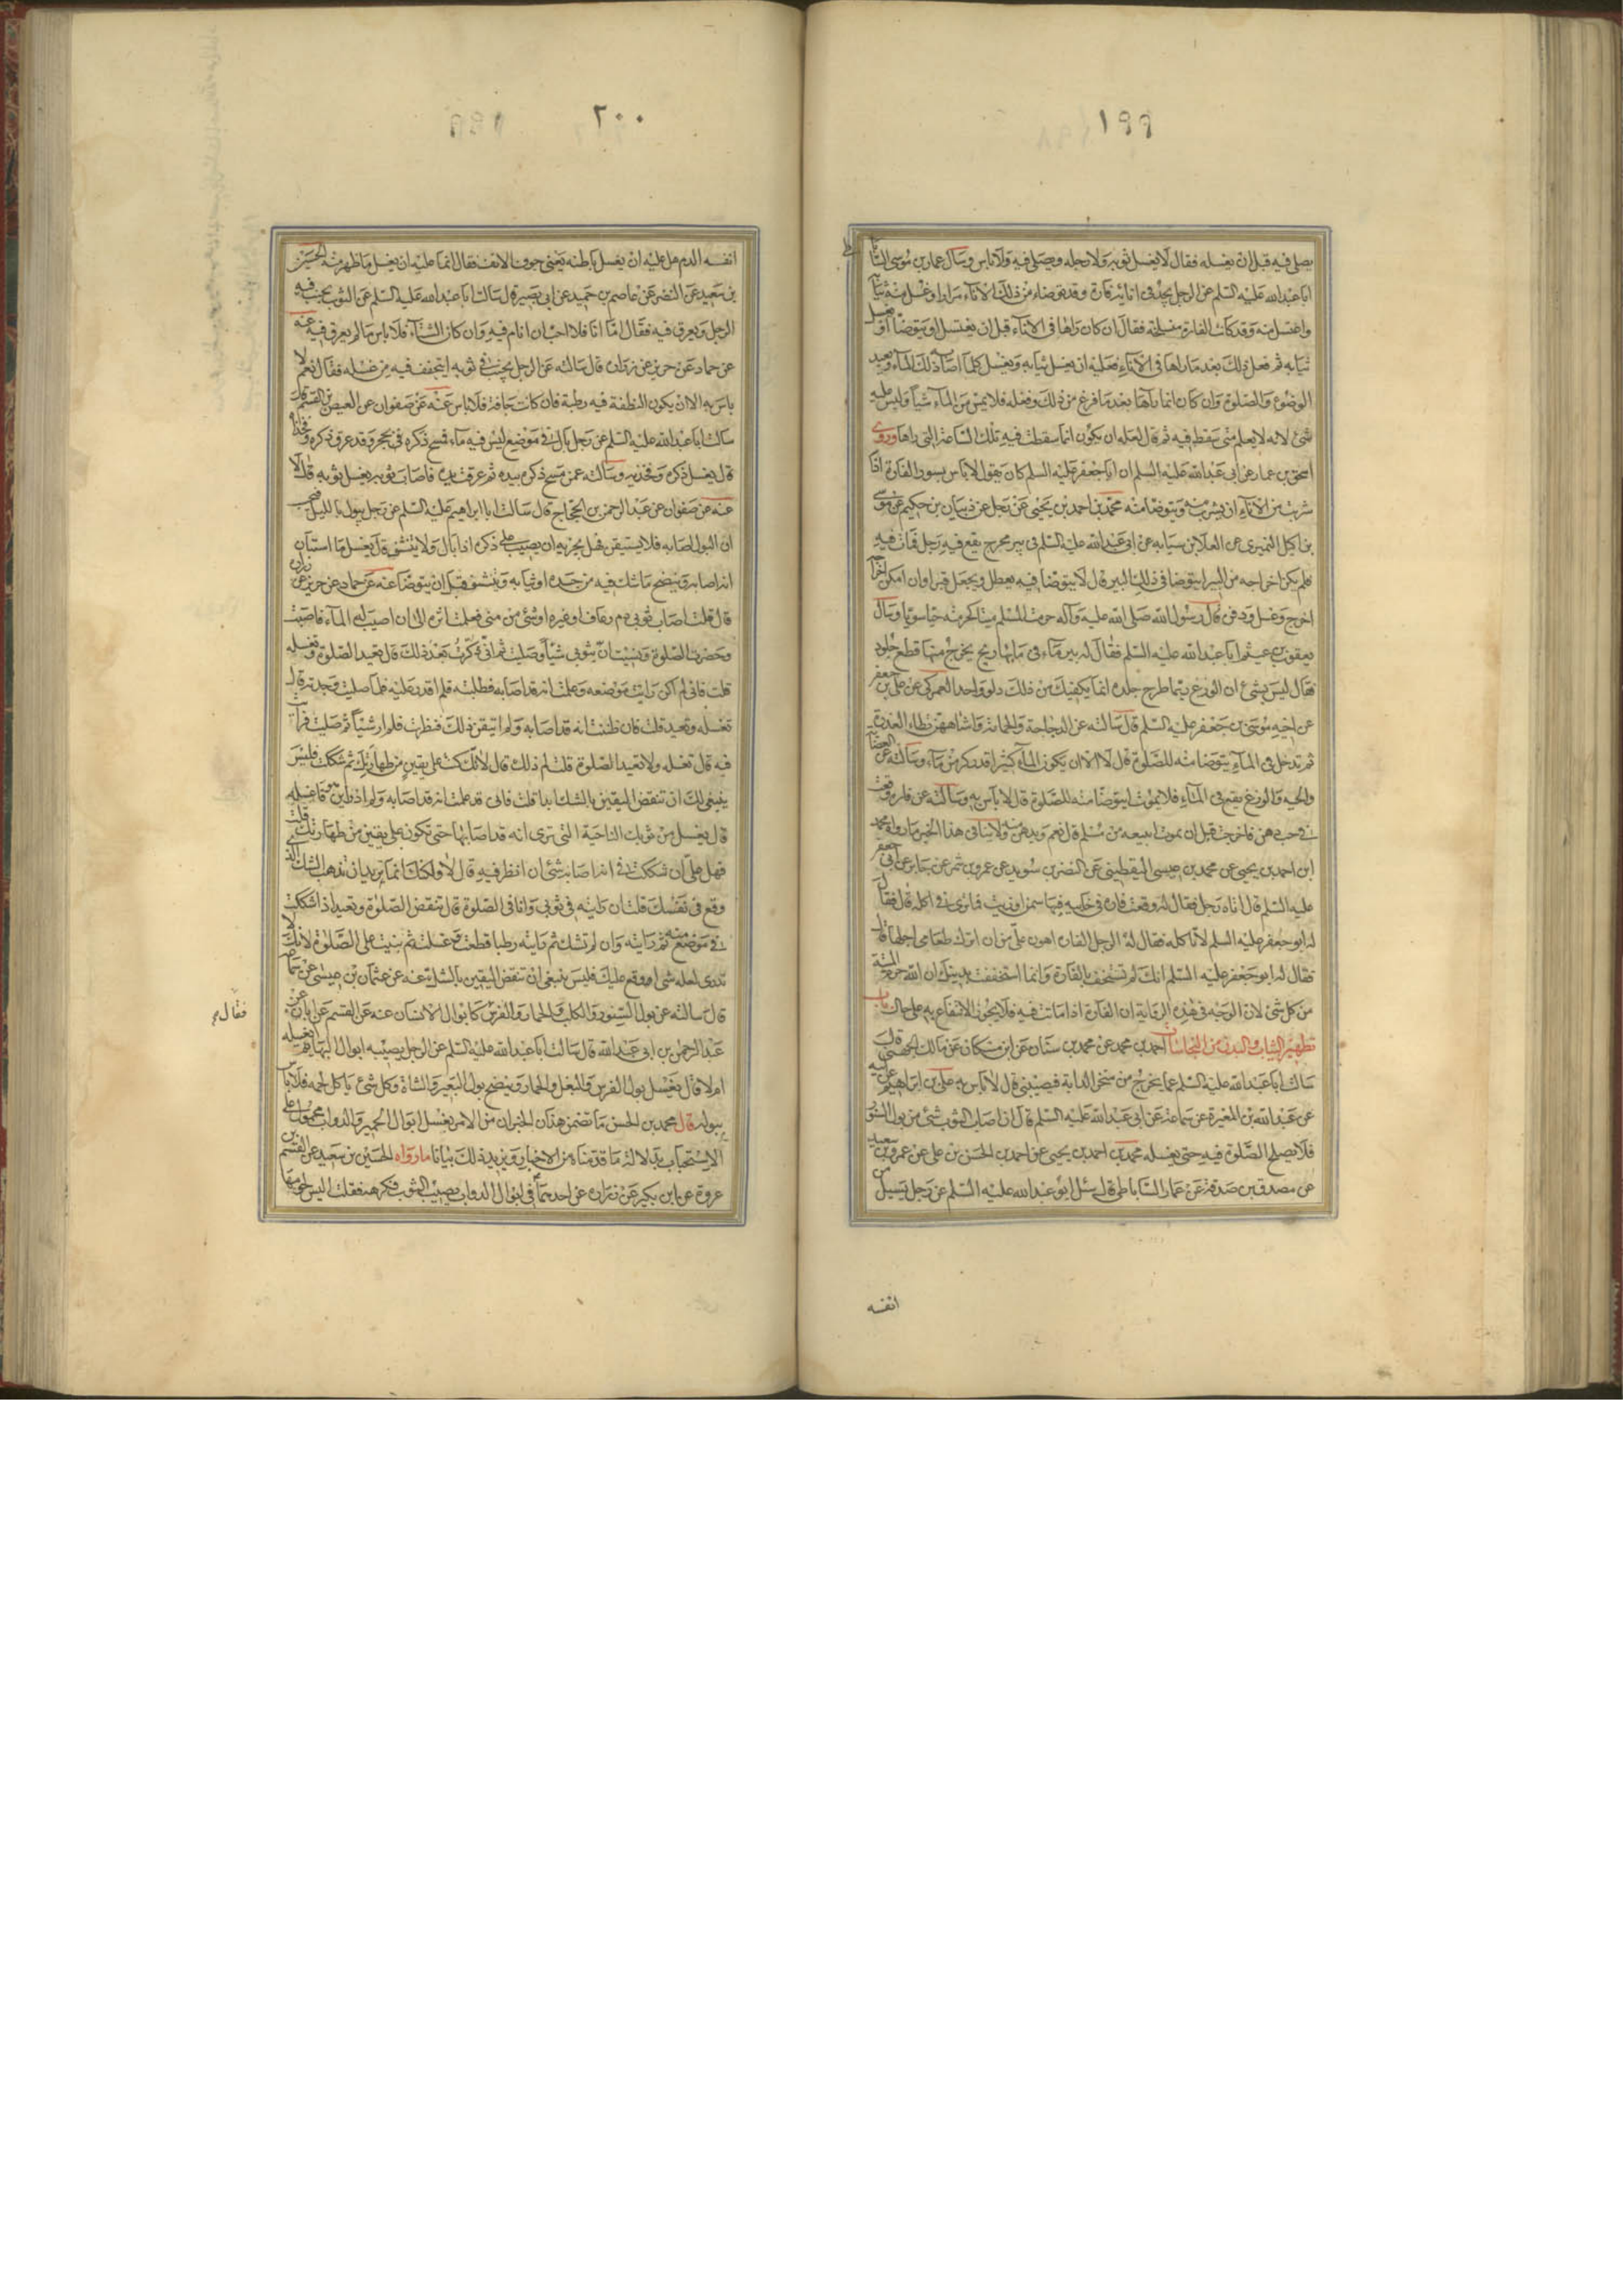 ١٩٩
يصلى فيه قبل ان يغسله فقال لا يغسل ثوبه ولا رجله ويصلى فيه ولا باس وسال عمار بن موسى
ابا عبدالله عليه السلم عن الرجل يجد فى انائه فارة وقد توضاء من ذلك الاناء مرارا وغسل منه ثيابه
واغتسل منه وقد كانت الفارة منسلخة فقال ان كان راها فى الاناء قبل ان يغتسل او يتوضا او يغسل
ثيابه ثم فعل ذلك بعد ما راها فى الاناء فعليه ان يغسل ثيابه ويغسل كلما اصابه ذلك الماء ويعيد
الوضوء والصلوة وان كان انما رآها بعد ما فرغ من ذلك وفعله فلا يمس من الماء شيأ وليس عليه
شئ لانه لا يعلم متى سقط فيه ثم قال لعله ان يكون انما سقطت فيه تلك الساعة التى راها وروى
اسحق بن عمار عن ابى عبدالله عليه السلم ان ابا جعفر عليه السلم كان يقول لا باس بسور الفارة اذا
شربت من الاناء ان يشرب منه ويتوضا منه محمد بن احمد بن يحيى عن رجل عن ذبيان بن حكيم عن موسى
بن اكيل النميرى عن العلا بن سيابه عن ابى عبدالله عليه السلم فى بير مخرج يقع فيه رجل فمات فيه
فلم يكن اخراجه من البير ايتوضا فى ذلك البير قال لا يتوضا فيه يعطل ويجعل قبرا وان امكن اخراجه
اخرج وغسل ودفن قال رسول الله صلى الله عليه وآله حرمت المسلم ميتا كحرمته حيا سويا وسال
يعقوب بن عيثم ابا عبدالله عليه السلم فقال له بير ماء فى مايها ريح يخرج منها قطع جلود
فقال ليس بشئ ان الوزغ ربما طرح جلده انما يكفيك من ذلك دلو واحد العمركى عن على بن جعفر
عن اخيه موسى بن جعفر عليه السلم قال سالته عن الدجاجة والحمامة واشباههن تطاء العذرة
ثم تدخل فى الماء يتوضا منه للصلوة قال لا الا ان يكون الماء كثيرا قدر كر من ماء وسالته عن العضاية
والحية والوزغ يقع فى الماء فلا يموت ايتوضا منه للصلوة قال لا باس به وسالته عن فارة وقعت
فى حب دهن فاخرجت قبل ان يموت ايبيعه من مسلم قال نعم ويدهن منه ولا ينافى هذا الخبر ما رواه محمد
ابن احمد بن يحيى عن محمد بن عيسى اليقطينى عن النضر بن سويد عن عمرو بن شمر عن جابر عن ابى جعفر
عليه السلم قال اتاه رجل فقال له وقعت فارة فى خابيه فيها سمن او زيت فما ترى فى اكله قال فقال
له ابو جعفر عليه السلم لا تاكله فقال له الرجل الفارة اهون على من ان اترك طعامى من اجلها قال
فقال له ابو جعفر عليه السلم انك لم تستخف بالفارة وانما استخففت بدينك ان الله حرم الميتة
من كل شئ لان الوجه فى هذه الرواية ان الفارة اذا ماتت فيه فلا يجوز الانتفاع به على حال باب
تطهير الثياب والبدن من النجاسات احمد بن محمد عن محمد بن سنان عن ابن مسكان عن مالك الجهنى قال
سالت ابا عبدالله عليه السلم عما يخرج من منخر الدابة فيصيبنى قال لا باس به على بن ابراهيم عن ابيه
عن عبدالله بن المغيرة عن سماعة عن ابى عبدالله عليه السلم قال ان اصاب الثوب شئ من بول السنور
فلا يصلح الصلوة فيه حتى يغسله محمد بن احمد بن يحيى عن احمد بن الحسن بن على عن عمرو بن سعيد
عن مصدق بن صدقة عن عمار الساباطى قال سئل ابو عبدالله عليه السلم عن رجل يسيل من
انفسه
٢٠٠
انفسه الدم هل عليه ان يغسل باطنه يعنى جوف الانف فقال انما عليه ان يغسل ما ظهر منه الحسين
بن سعيد عن النضر عن عاصم بن حميد عن ابى بصير قال سالت ابا عبدالله عليه السلم عن الثوب يجنب فيه
الرجل ويعرق فيه فقال اما انا فلا احب ان انام فيه وان كان الشتآء فلا باس ما لم يعرق فيه عنه
عن حماد عن حريز عن زرارة قال سالته عن الرجل يجنب فى ثوبه ايتجفف فيه من غسله فقال نعم لا
باس به الا ان يكون النطفة فيه رطبة فان كانت جافة فلا باس عنه عن صفوان عن العيص بن القسم قال
سالت ابا عبدالله عليه السلم عن رجل بال فى موضع ليس فيه ماء فمسح ذكره فى بحجر وقد عرق ذكره وفخذاه
قال يغسل ذكره وفخذيه وسالته عمن مسح ذكره بيده ثم عرقت يده فاصاب ثوبه يغسل ثوبه قال لا
عنه عن صفوان عن عبد الرحمن بن الحجاج قال سالت ابا ابراهيم عليه السلم عن رجل يبول بالليل فيحسب
ان البول اصابه فلا يستيقن فهل يجزيه ان يصيب على ذكره اذا بال ولا يتنشف قال يغسل ما استبان
انه اصابه وينضح ما شك فيه من جسده او ثيابه ويتنشف قبل ان يتوضا عنه عن حماد عن حريز عن زرارة
قال قلت اصاب ثوبى دم رعاف او غيره او شئ من منى فعلمت اثره الى ان اصيب له الماء فاصبت
وحضرت الصلوة ونسيت ان بثوبى شيأ وصليت ثم انى ذكرت بعد ذلك قال تعيد الصلوة وتغسله
قلت فانى لم اكن رايت موضعه وعلمت انه قد اصابه فطلبته فلم اقدر عليه فلما صليت وجدته قال
تغسله وتعيد قلت فان ظننت انه قد اصابه ولم اتيقن ذلك فنظرت فلم ار شيأ ثم صليت فرايت
فيه قال تغسله ولا تعيد الصلوة قلت لم ذلك قال لانك كنت على يقين من طهارتك ثم شككت فليس
ينبغى لك ان تنقض اليقين بالشك ابدا قلت فانى قد علمت انه قد اصابه ولم ادر اين هو فاغسله
قال يغسل من ثوبك الناحية التى ترى انه قد اصابها حتى تكون على يقين من طهارتك قلت
فهل على ان شككت فى انه اصابه شئ ان انظر فيه قال لا ولكنك انما تريد ان تذهب الشك الذى
وقع فى نفسك قلت ان رايته فى ثوبى وانا فى الصلوة قال تنقض الصلوة وتعيد اذا شككت
فى موضع منه ثم رايته وان لم تشك ثم رايته رطبا قطعت وغسلته ثم بنيت على الصلوة لانك لا
تدرى لعله شئ اوقع عليك فليس ينبغى ان تنقض اليقين بالشك عنه عن عثمان بن عيسى عن سماعة
قال سالته عن بول السنور والكلب والحمار والفرس كابوال الانسان عنه عن القسم عن ابان عن
عبد الرحمن بن ابى عبدالله قال سالت ابا عبدالله عليه السلم عن الرجل يصيبه ابوال البهايم ايغسله
ام لا قال يغسل بول الفرس والبغل والحمار وينضح بول البعير والشاة وكل شئ ياكل لحمه فلا باس
ببوله قال محمد بن الحسن ما تضمن هذان الخبران من الامر بغسل ابوال الحمير والدواب محمول على
الاستحباب بدلالة ما قدمناه من الاخبار ويزيد ذلك بيانا ما رواه الحسين بن سعيد عن القسم بن
عروة عن ابن بكير عن زرارة عن احدهما فى ابوال الدواب يصيب الثوب فكرهه فقلت اليس لحومها
فقال